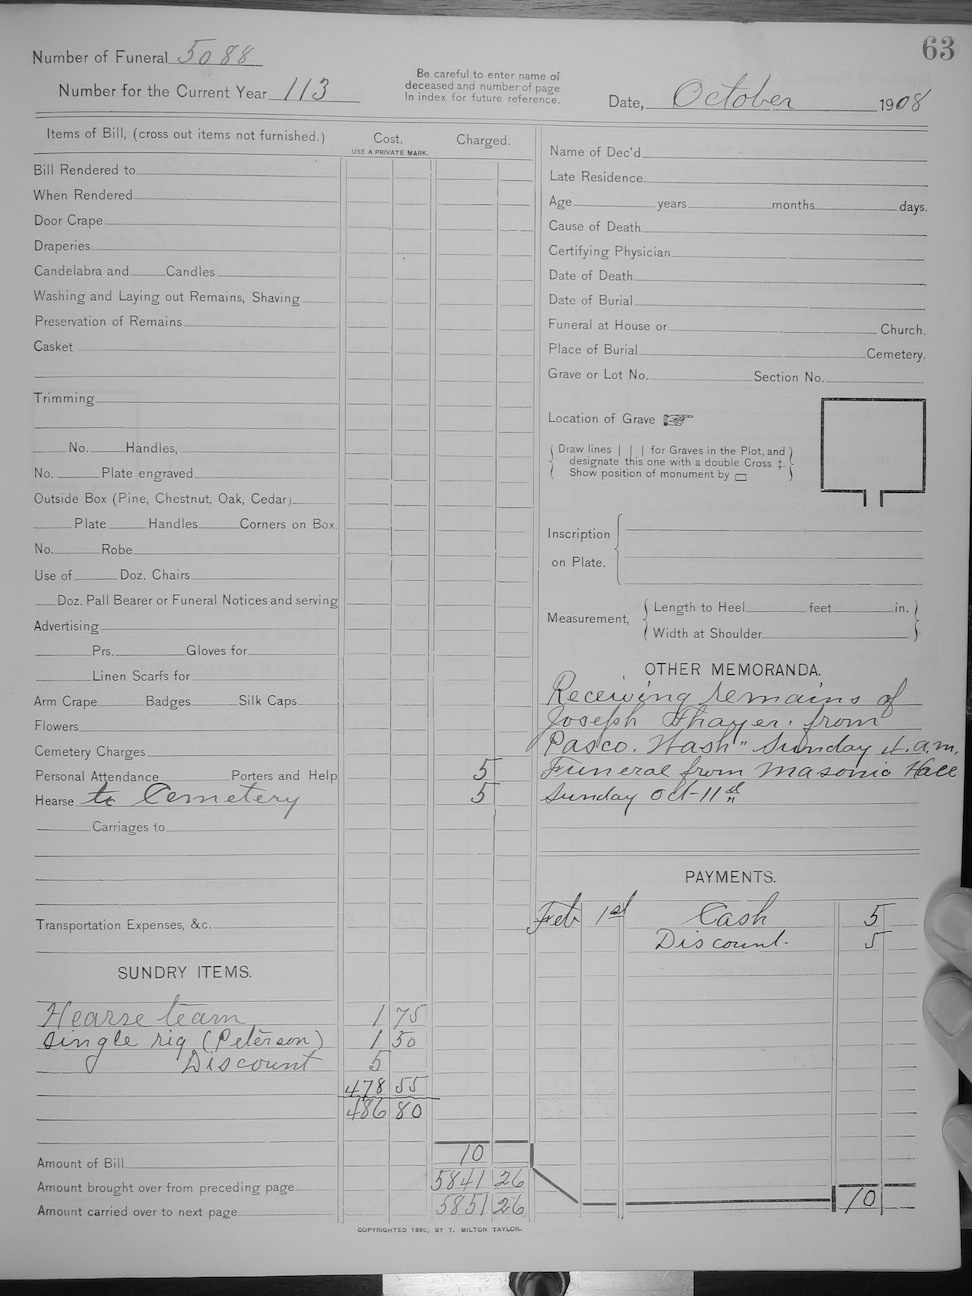 63
Number of Funeral 5088
Number for the Current Year 113
Be careful to enter name of
deceased and number of page
In index for future reference.
Date, October 1908
Items of Bill, (cross out items not furnished.)
Cost.
USE A PRIVATE MARK.
Charged.
Bill Rendered to
When Rendered
Door Crape
Draperies
Candelabra and Candles
Washing and Laying out Remains, Shaving
Preservation of Remains
Casket
Trimming
No. Handles,
No. Plate engraved
Outside Box (Pine, Chestnut, Oak, Cedar)
Plate Handles Corners on Box
No. Robe
Use of Doz. Chairs
Doz. Pall Bearer or Funeral Notices and serving
Advertising
Prs. Gloves for
Linen Scarfs for
Arm Crape Badges Silk Caps
Flowers
Cemetery Charges
Personal Attendance Porters and Help 5
Hearse to Cemetery 5
Carriages to
Transportation Expenses, &c.
SUNDRY ITEMS.
Hearse team 1 75
single rig (Peterson) 1 50
Discount 5
478 55
486 80
Amount of Bill 10
Amount brought over from preceding page 5841 26
Amount carried over to next page 5851 26
Name of Dec'd
Late Residence
Age years months days.
Cause of Death
Certifying Physician
Date of Death
Date of Burial
Funeral at House or Church.
Place of Burial Cemetery.
Grave or Lot No. Section No.
Location of Grave ☞
( Draw lines | | | for Graves in the Plot, and )
designate this one with a double Cross ‡.
Show position of monument by ▭
Inscription
on Plate.
Measurement,
Length to Heel feet in.
Width at Shoulder
OTHER MEMORANDA.
Receiving remains of
Joseph Thayer. from
Pasco. Wash" Sunday a.m.
Funeral from Masonic Hall
Sunday Oct-11
PAYMENTS.
Feb 1st Cash 5
Discount. 5
10
COPYRIGHTED 1890, BY T. MILTON TAYLOR.